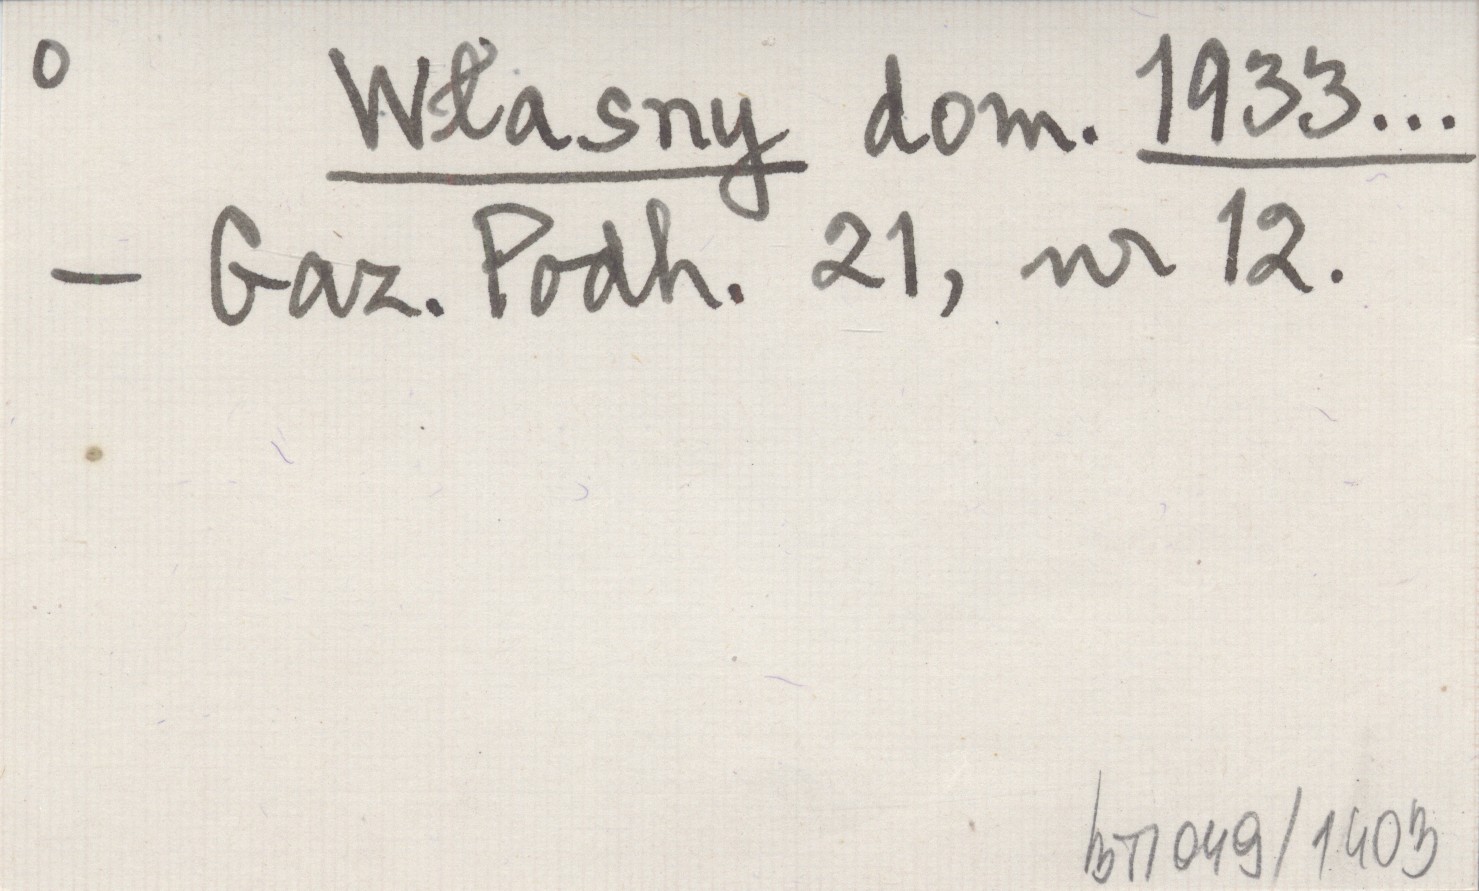 o Własny dom. 1933...
— Gaz. Podh. 21, nr 12.
049/1403